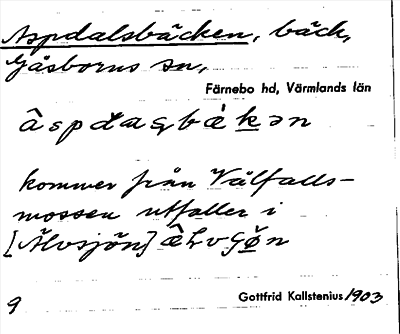 Aspdalsbäcken, bäck,
Gåsborns sn,
Färnebo hd, Värmlands län
kommer från Välfalls-
mossen utfaller i
[Älvsjön]
Gottfrid Kallstenius 1903
9